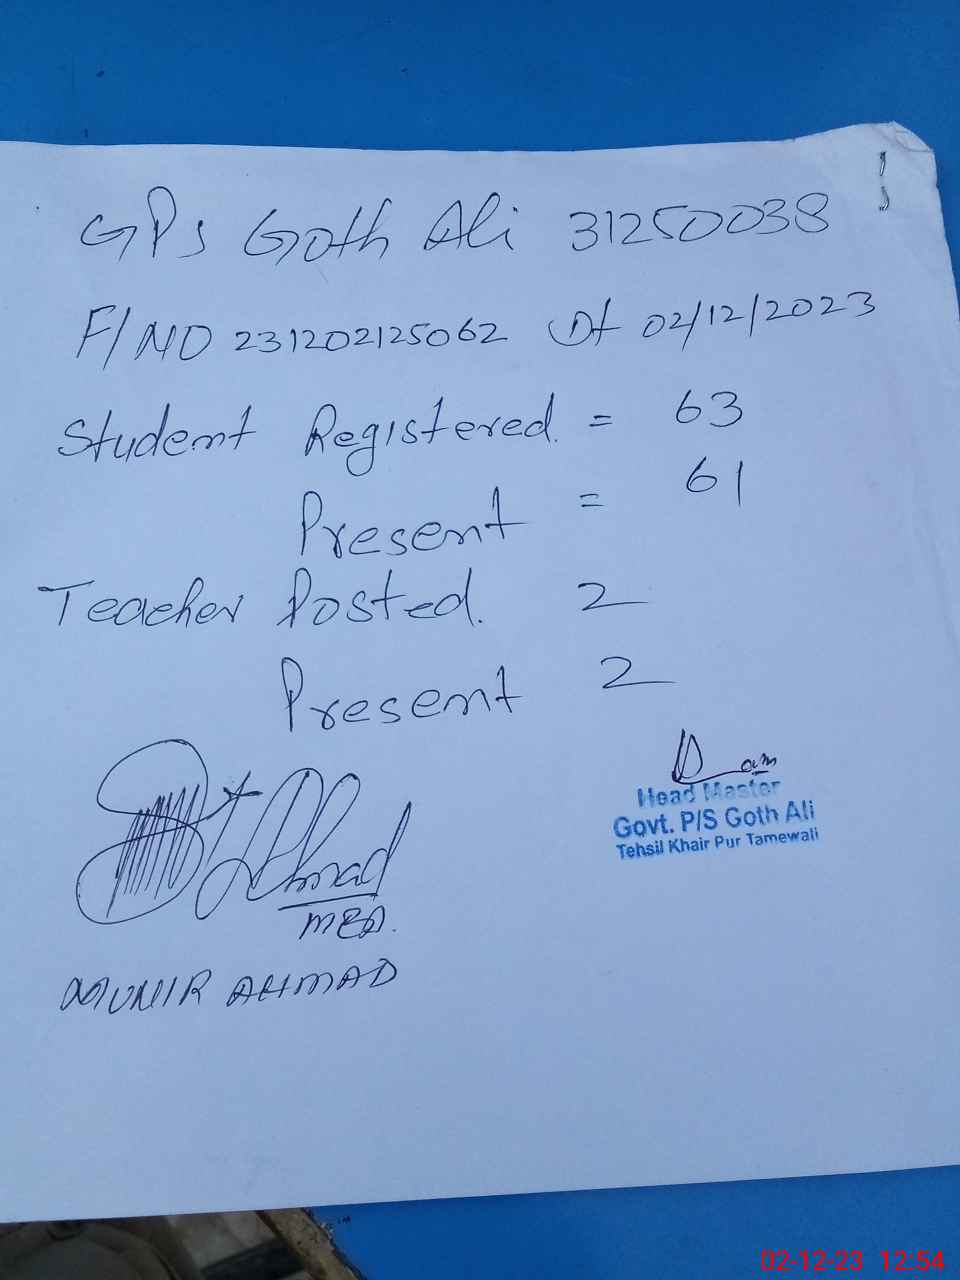 GPS Goth Ali 31250038
F/NO 231202125062 Dt 02/12/2023
Student Registered. = 63
Present = 61
Teacher Posted. 2
Present 2
Ahmad
MEA.
MUNIR AHMAD
Head Master
Govt. P/S Goth Ali
Tehsil Khair Pur Tamewali
02-12-23 12:54